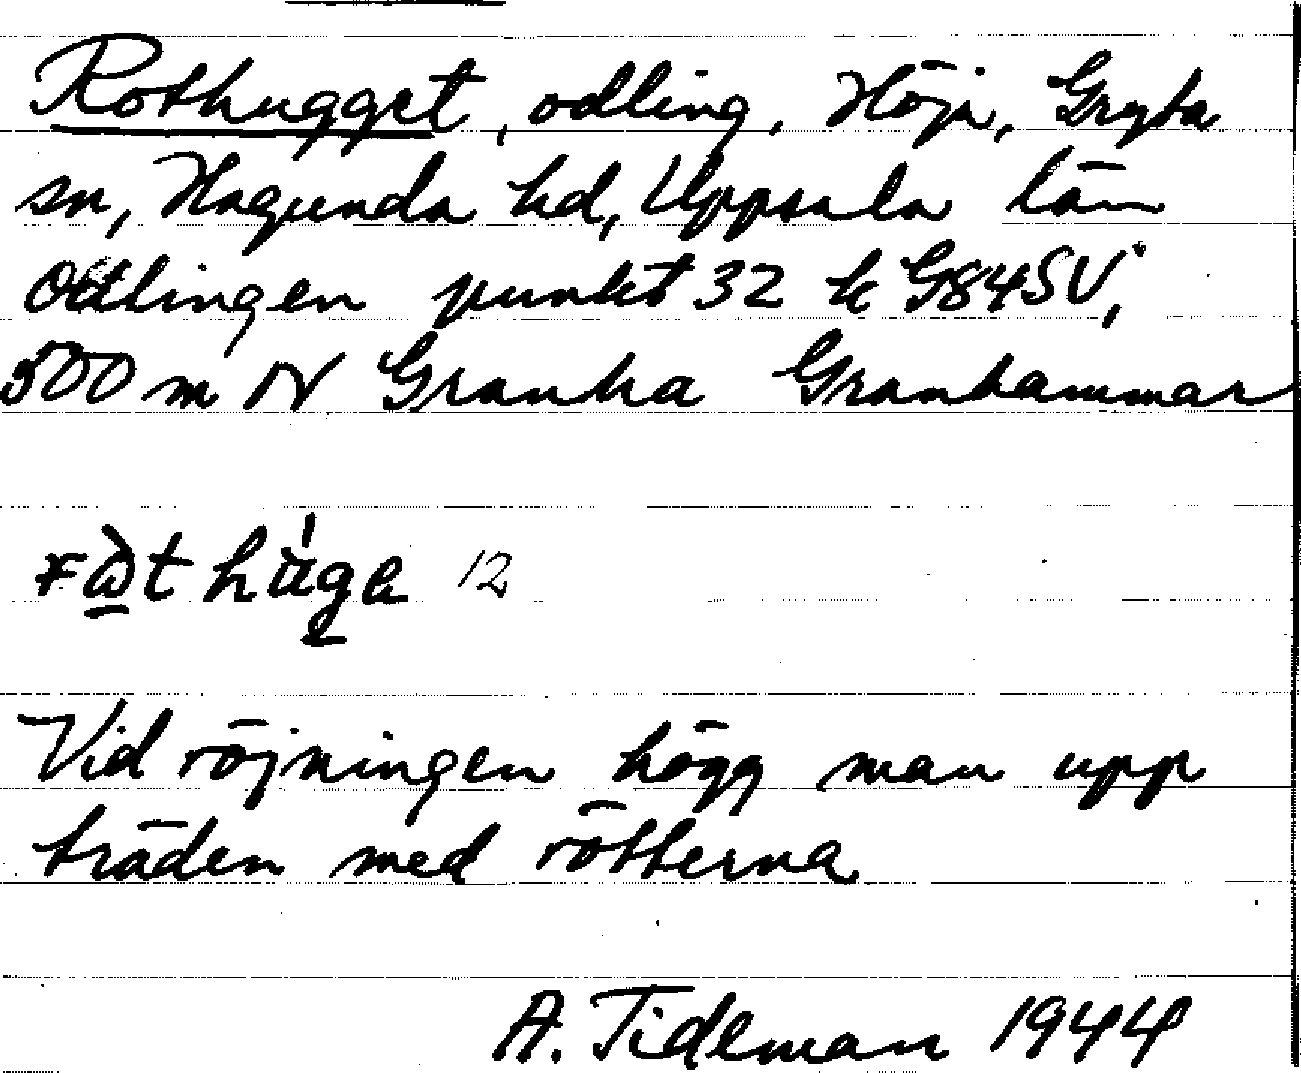 Rothugget, odling, Höja, Gryta
sn, Hagunda hd, Uppsala län
Odlingen punkt 32 k G84SV,
500 m N Granha Granhammar
Vid röjningen högg man upp
träden med rötterna
A. Tideman 1944